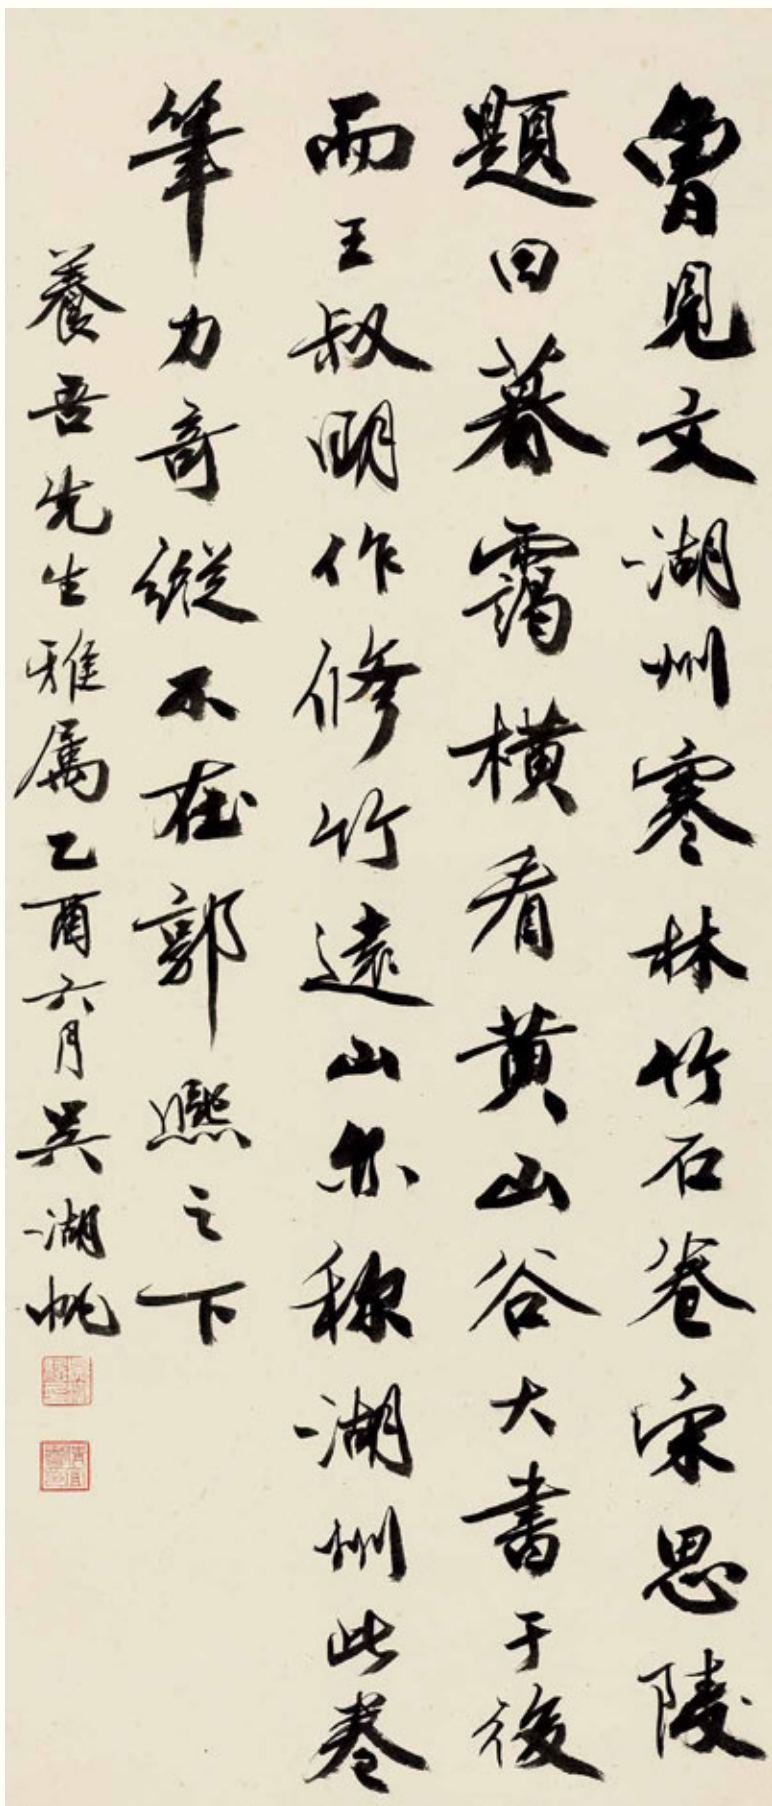 曾見文湖州寒林竹石卷宋思陵
題曰暮靄橫看黄山谷大書于後
而王叔明作修竹遠山亦稱湖州此卷
筆力奇縱不在郭熙之下
養吾先生雅属乙酉六月吳湖帆